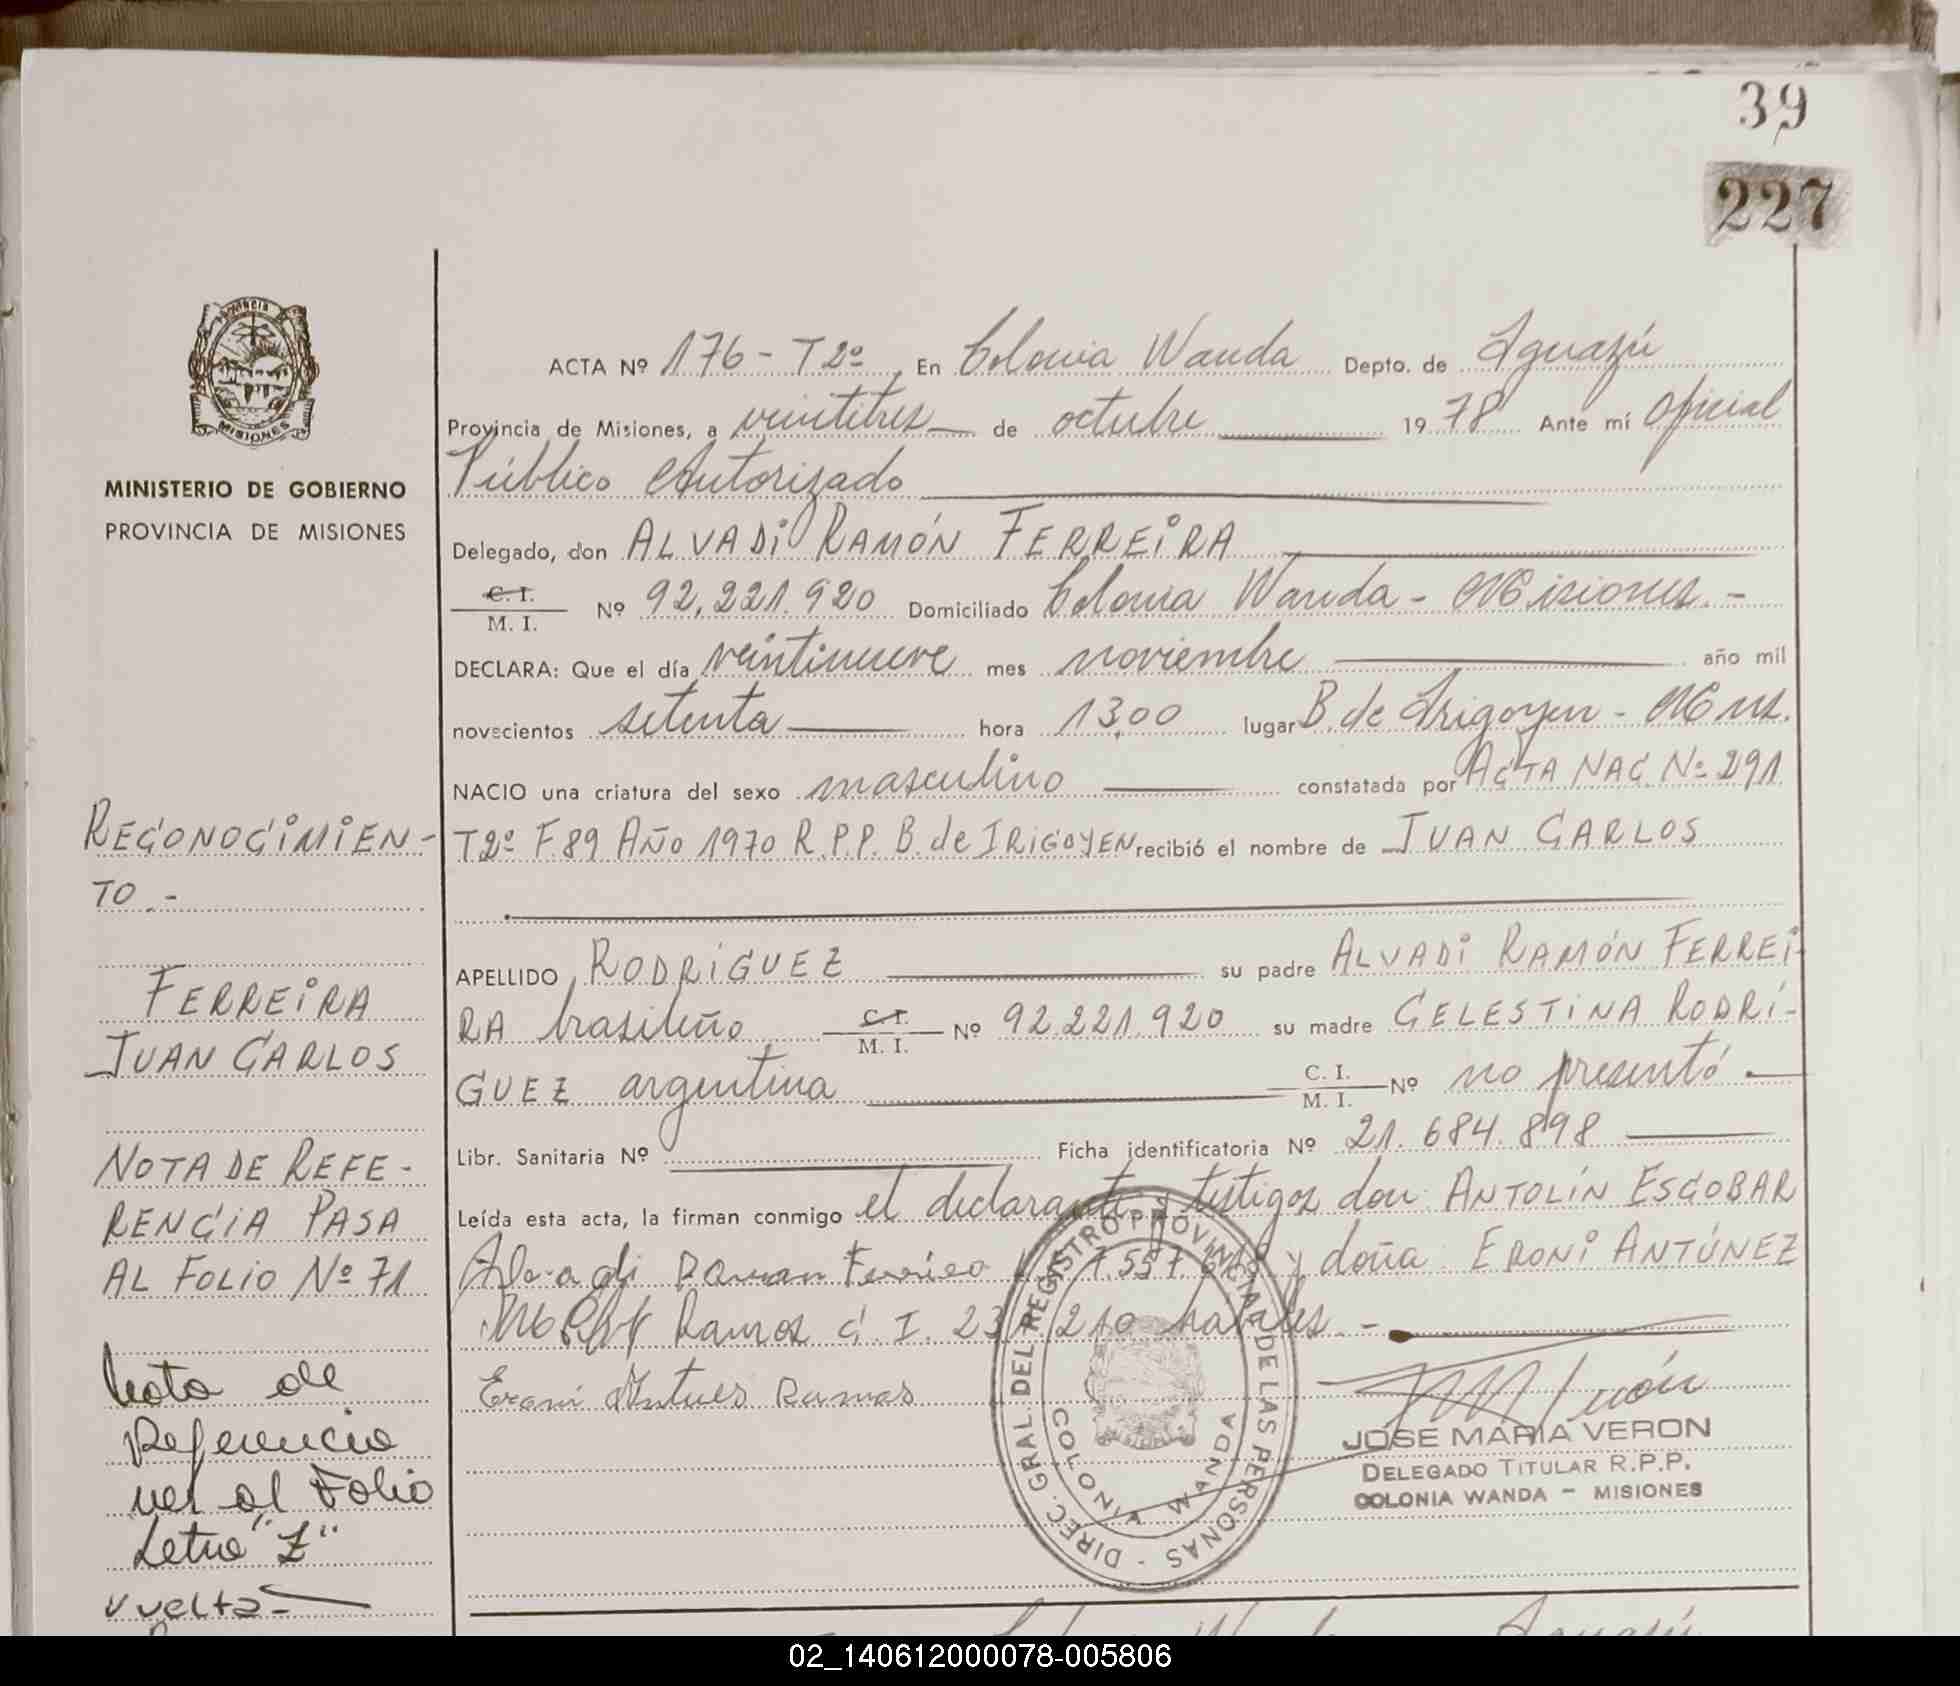 39
227
PROVINCIA
MISIONES
MINISTERIO DE GOBIERNO
PROVINCIA DE MISIONES
RECONOCIMIEN-
TO.-
FERREIRA
JUAN CARLOS
NOTA DE REFE-
RENCIA PASA
AL FOLIO Nº 71
Nota de
Referencia
ver al Folio
Letra "Z"
vuelta-
ACTA Nº 176- T2º. En Colonia Wanda Depto. de Iguazú
Provincia de Misiones, a veintitres de octubre 1978 Ante mí Oficial
Público Autorizado
Delegado, don ALVADI RAMÓN FERREIRA
C. I. / M. I. Nº 92.221.920 Domiciliado Colonia Wanda - Misiones.-
DECLARA: Que el día veintinueve mes noviembre año mil
novecientos setenta hora 13,00 lugar B. de Irigoyen - Mnes.
NACIO una criatura del sexo masculino constatada por ACTA NAC. Nº 291
T2º F.89 AÑO 1970 R.P.P. B. de IRIGOYEN recibió el nombre de JUAN CARLOS
APELLIDO RODRÍGUEZ su padre ALVADI RAMÓN FERREI-
RA brasileño C. I. / M. I. Nº 92.221.920 su madre CELESTINA RODRÍ-
GUEZ argentina C. I. / M. I. Nº no presentó.
Libr. Sanitaria Nº Ficha identificatoria Nº 21.684.898
Leída esta acta, la firman conmigo el declarante y testigos don: ANTOLÍN ESCOBAR
7.557. y doña: ERONI ANTÚNEZ
Ramos C. I. 23 210 habiles.-
Eroni Antues Ramos
DIREC. GRAL. DEL REGISTRO PROVINCIAL DE LAS PERSONAS -
COLONIA WANDA
JOSE MARIA VERON
DELEGADO TITULAR R.P.P.
COLONIA WANDA - MISIONES
02_140612000078-005806